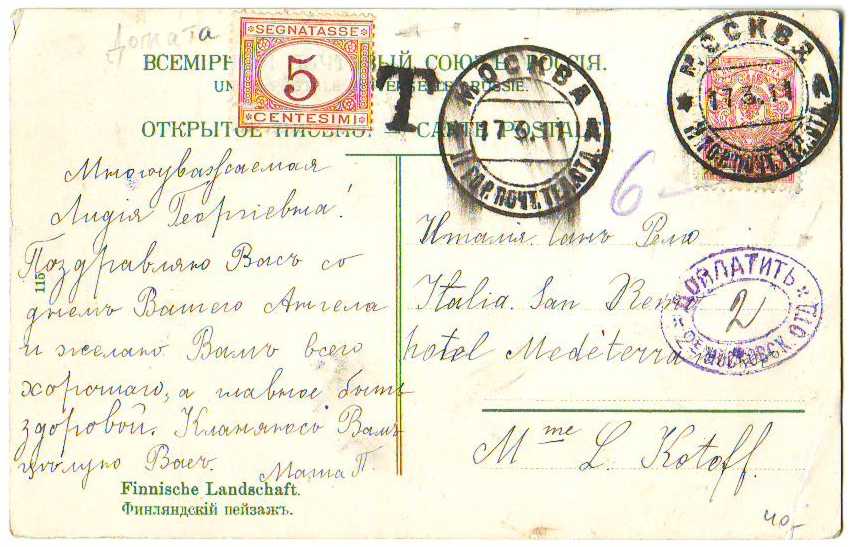 Доплата
SEGNATASSE
5
CENTESIMI
T
ВСЕМІРН ЫЙ СОЮЗЪ РОССІЯ.
UN VERSELLE. RUSSIE.
ОТКРЫТОЕ ПИСЬМО. — CARTE POSTALE
МОСКВА
17 3. 11
ГОР. ПОЧТ. ТЕЛ. ОТД.
МОСКВА
17 3. 11
ГОР. ПОЧТ. ТЕЛ. ОТД.
6
Многоуважаемая
Лидія Георгіевна!
Поздравляю Васъ со
днемъ Вашего Ангела
и желаю Вамъ всего
хорошаго, а главное быть
здоровой. Кланяюсь Вамъ
цѣлую Васъ.
Маша П.
115
Италія. Санъ Ремо
Italia. San Remo
hotel Medeterra
ДОПЛАТИТЬ
2
МОСКОВСК
Mme L. Kotoff.
Finnische Landschaft.
Финляндскій пейзажъ.
40,-